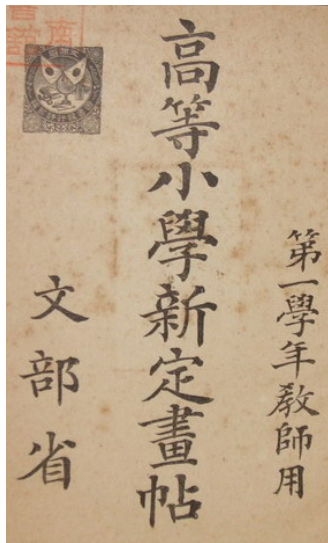 第一學年敎師用
高等小學新定畫帖
文部省